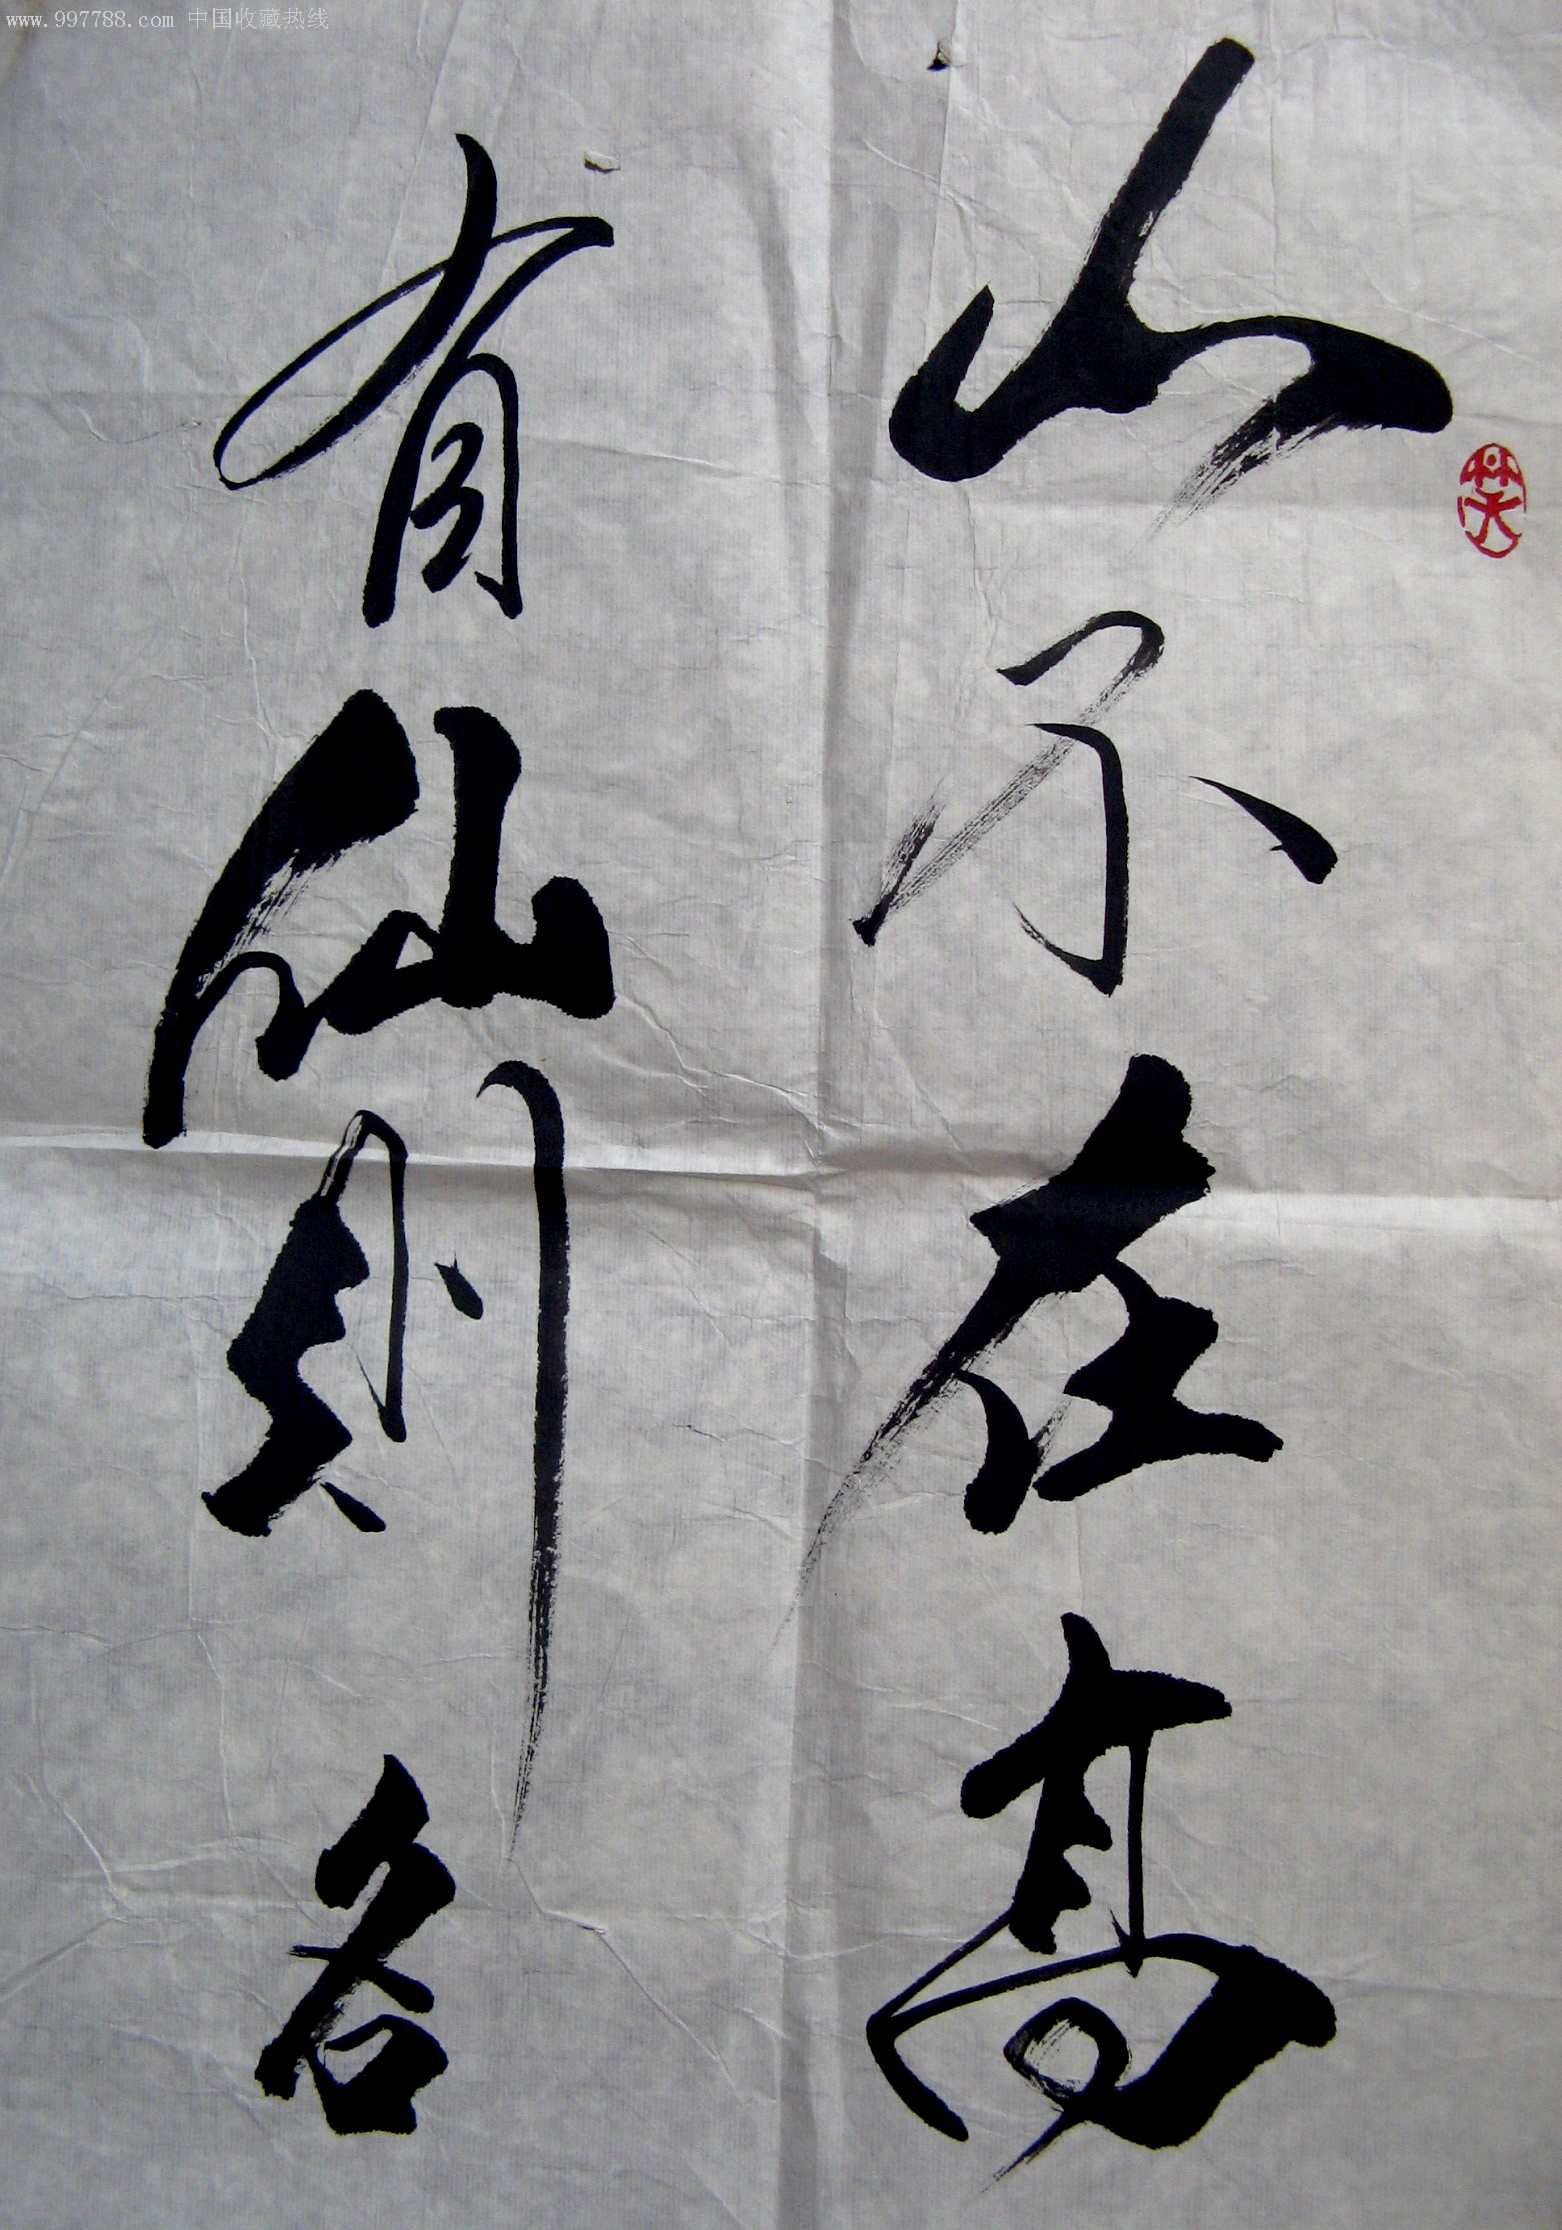 www.997788.com 中国收藏热线
山不在高
有仙则名
笑